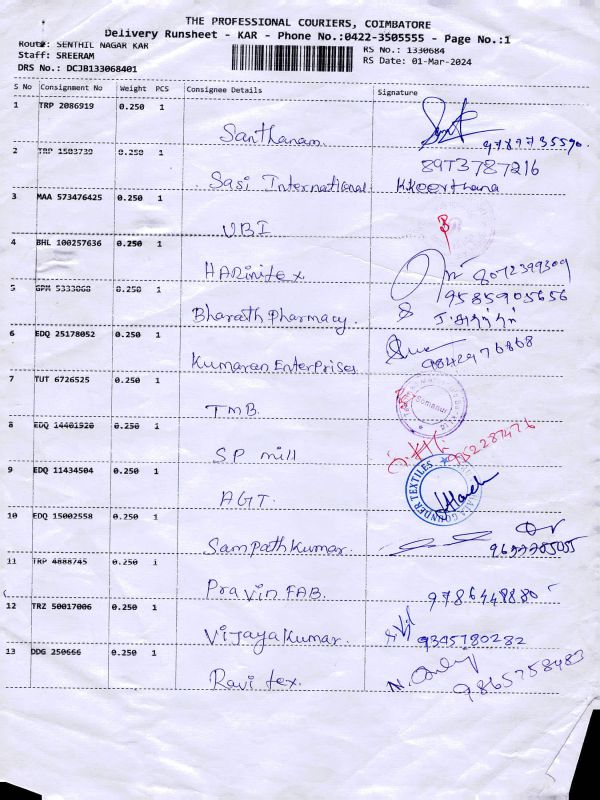 THE PROFESSIONAL COURIERS, COIMBATORE
Delivery Runsheet - KAR - Phone No.:0422-3505555 - Page No.:1
Route: SENTHIL NAGAR KAR
RS No.: 1330684
Staff: SREERAM
RS Date: 01-Mar-2024
DRS No.: DCJB133068401
S No Consignment No Weight PCS Consignee Details Signature
1 TRP 2086919 0.250 1
Santhanam
2 TRP 1503739 0.250 1
8973787216
Sasi International KKeerthana
3 MAA 573476425 0.250 1
UBI
4 BHL 100257636 0.250 1
HARinitex 8072399309
5 GPM 5333068 0.250 1
9585905656
Bharath Pharmacy.
6 EDQ 25178052 0.250 1
Kumaran Enterprises 9842976868
7 TUT 6726525 0.250 1
TMB. Somanur
8 EDQ 14401920 0.250 1
SP mill 9952287476
9 EDQ 11434504 0.250 1
AGT. GOUNDER TEXTILES
10 EDQ 15002558 0.250 1
Sampath Kumar.
11 TRP 4888745 0.250 1
Pravin FAB. 9786448880
12 TRZ 50017006 0.250 1
Vijaya Kumar. 9345780282
13 DDG 250666 0.250 1
Ravi tex. 9865758483